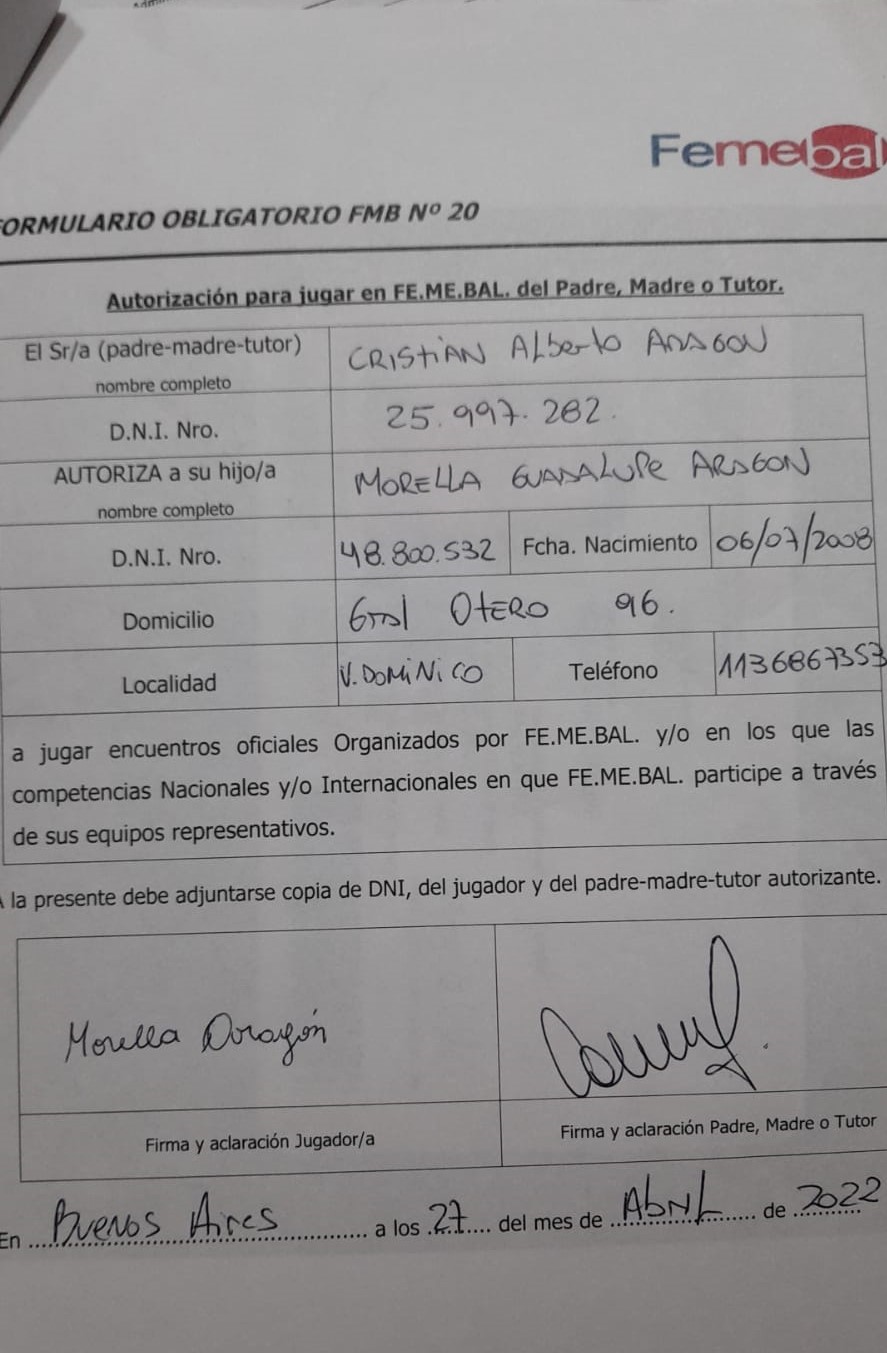 Femebal
FORMULARIO OBLIGATORIO FMB Nº 20
Autorización para jugar en FE.ME.BAL. del Padre, Madre o Tutor.
El Sr/a (padre-madre-tutor) CRISTIAN ALberto ARAGON
nombre completo
D.N.I. Nro. 25.997.282.
AUTORIZA a su hijo/a MORELLA GUADALUPE ARAGON
nombre completo
D.N.I. Nro. 48.800.532 Fcha. Nacimiento 06/07/2008
Domicilio Gral OtERO 96.
Localidad V. DOMiNiCO Teléfono 1136867353
a jugar encuentros oficiales Organizados por FE.ME.BAL. y/o en los que las
competencias Nacionales y/o Internacionales en que FE.ME.BAL. participe a través
de sus equipos representativos.
A la presente debe adjuntarse copia de DNI, del jugador y del padre-madre-tutor autorizante.
Morella Aragón
Firma y aclaración Jugador/a Firma y aclaración Padre, Madre o Tutor
En Buenos Aires a los 27 del mes de Abril de 2022